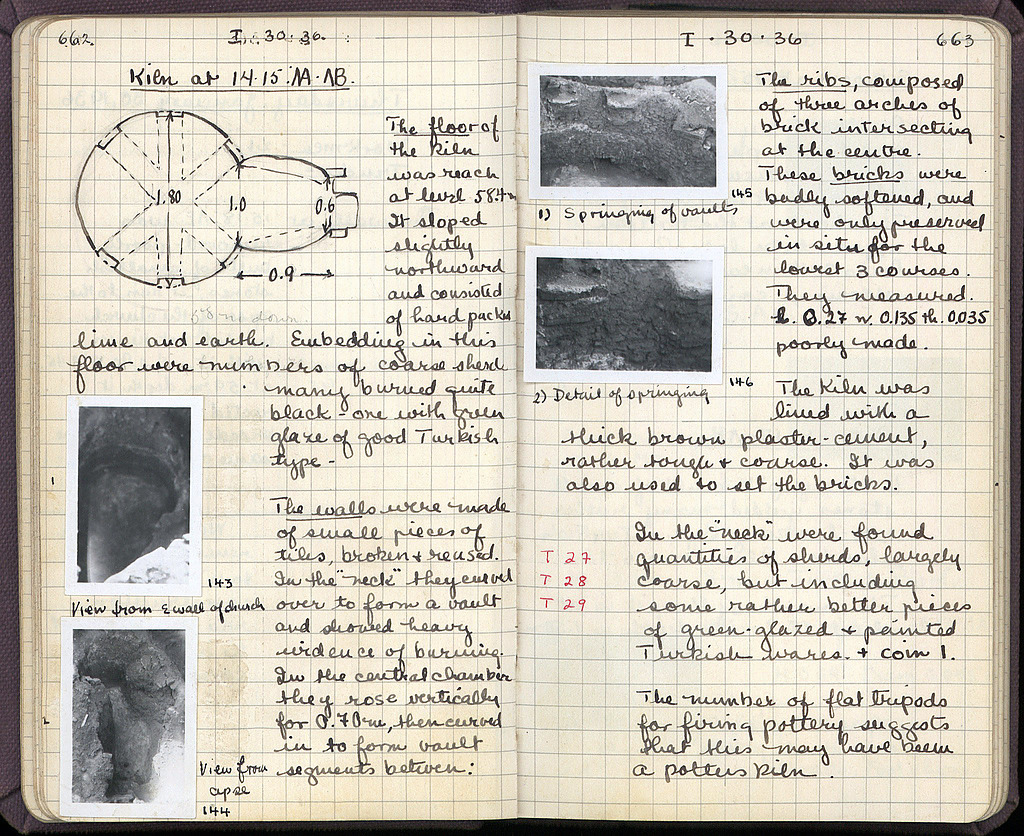 662.
I. 30. 36.
Kiln at 14·15. ΛA·ΛB.
1.80
1.0
0.6
0.9
The floor of
the kiln
was reach
at level 58.4m
It sloped
slightly
northward
and consisted
of hard packed
58 m down
lime and earth. Embedding in this
floor were numbers of coarse sherds
many burned quite
black - one with green
glaze of good Turkish
type -
1
143
View from E wall of church
The walls were made
of small pieces of
tiles, broken & reused.
In the "neck" they curved
over to form a vault
and showed heavy
evidence of burning.
In the central chamber
they rose vertically
for 0.70m, then curved
in to form vault
segments between:
2
View from
apse
144
I · 30 · 36
663
145
1) Springing of vaults
146
2) Detail of springing
The ribs, composed
of three arches of
brick intersecting
at the centre.
These bricks were
badly softened, and
were only preserved
in situ for the
lowest 3 courses.
They measured.
l. 0.27 w. 0.135 th. 0.035
poorly made.
The kiln was
lined with a
thick brown plaster-cement,
rather rough & coarse. It was
also used to set the bricks.
T 27
T 28
T 29
In the "neck" were found
quantities of sherds, largely
coarse, but including
some rather better pieces
of green-glazed & painted
Turkish wares. & coin 1.
The number of flat tripods
for firing pottery suggests
that this may have been
a potters kiln.